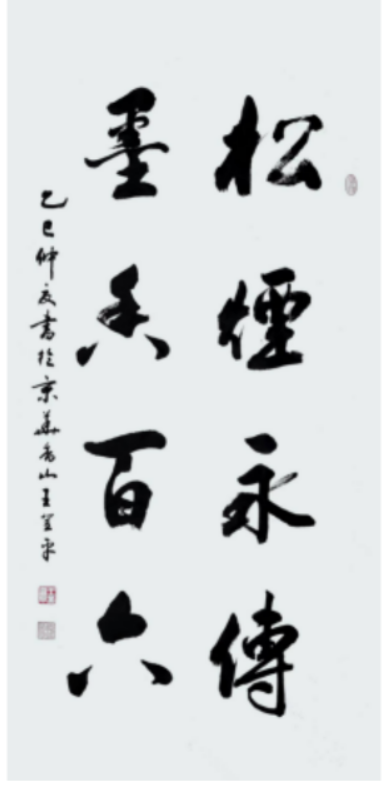 松煙永傳
墨香百六
乙巳仲夏書於京華香山王